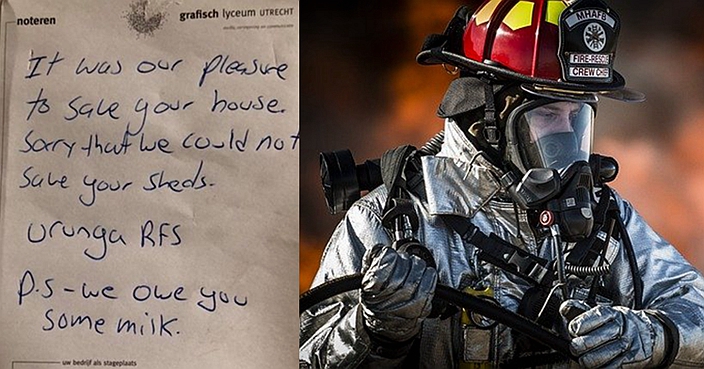 noteren
grafisch lyceum UTRECHT
It was our pleasure
to save your house.
Sorry that we could not
save your sheds.
Urunga RFS
P.S - we owe you
some milk.
uw bedrijf als stageplaats
MHAFB
FIRE-RESCUE
CREW CHIEF